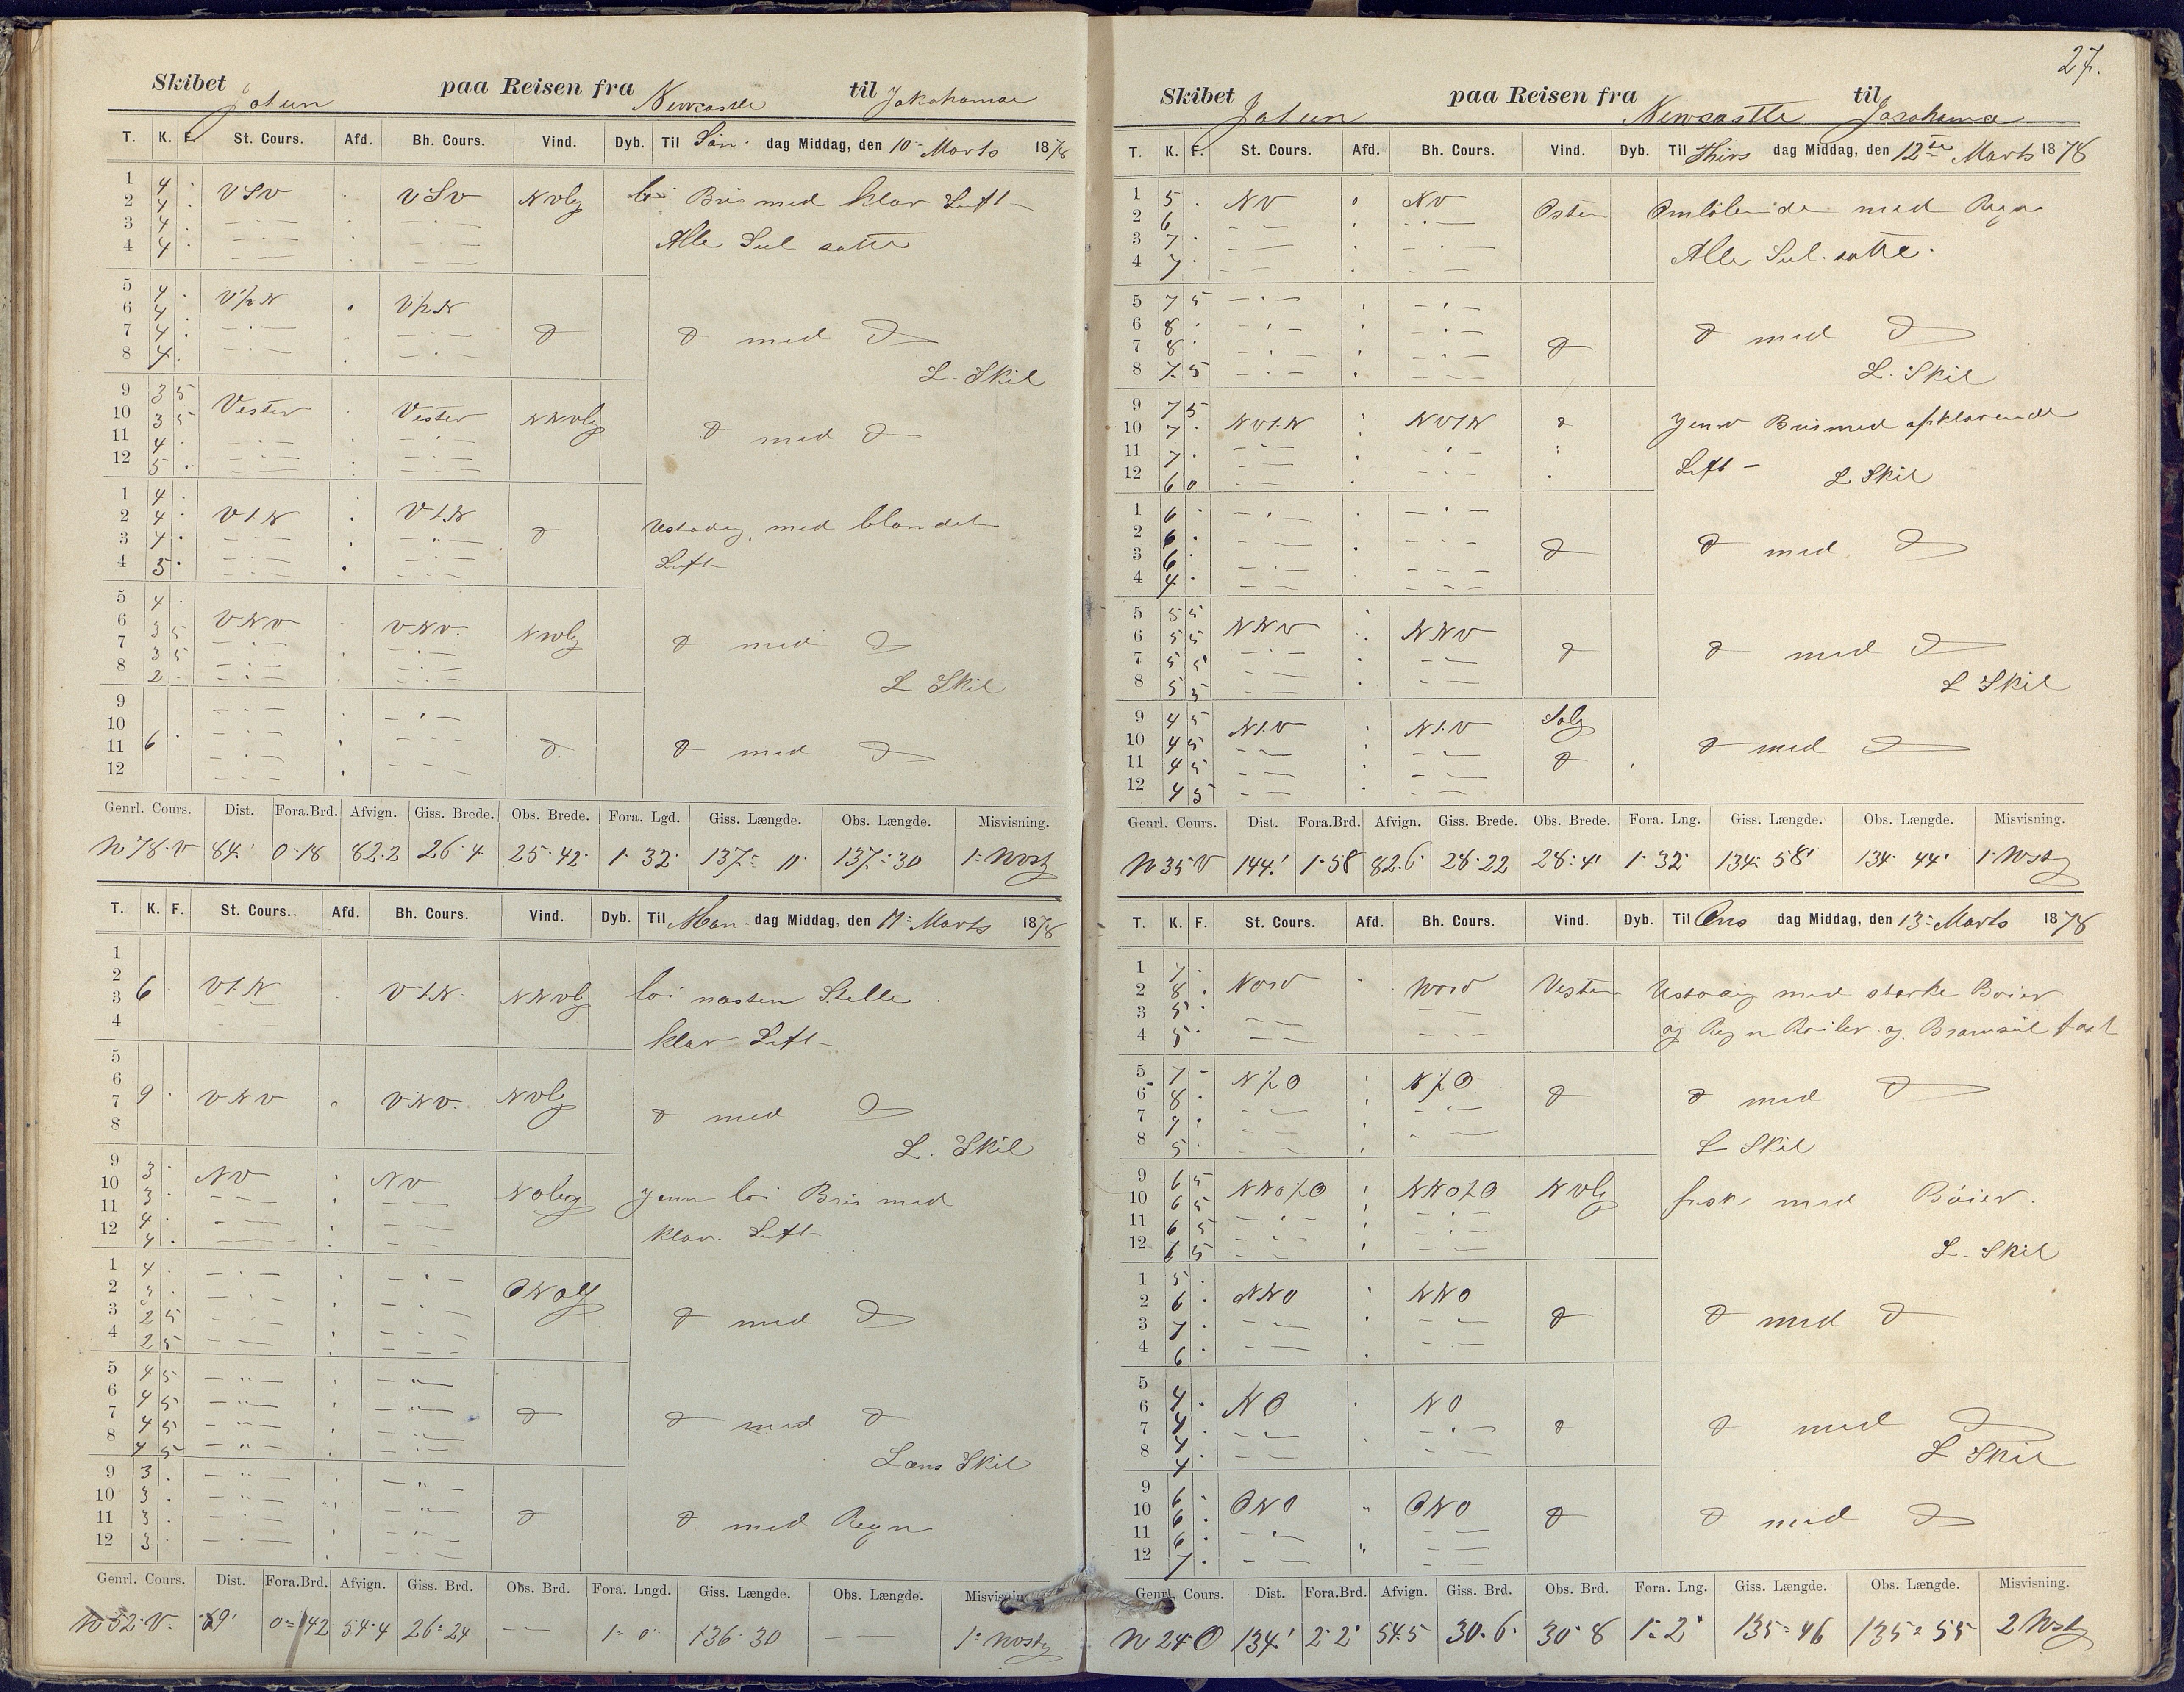 Skibet Jotun paa Reisen fra Newcastle til Jokohamae
T. K. F. St. Cours. Afd. Bh. Cours. Vind. Dyb. Til Søn- dag Middag, den 10- Marts 1878
1 4 VSV VSV NVlg løi Bris med klar Luft
2 4
3 4 Alle Seil satte
4 4
5 4 V½N V½N
6 4
7 4 d d med d
8 4
L. Skil
9 3 5 Vester Vester NNVlg
10 3 5 d med d
11 4
12 5
1 4
2 4 V t. N V t. N d Ustadig, med blandet
3 4 Luft
4 5
5 4
6 3 5 VNV VNV. NVlg d med d
7 3 5
8 2 L Skil
9
10
11 6 d d med d
12
Genrl. Cours. Dist. Fora.Brd. Afvign. Giss. Brede. Obs. Brede. Fora. Lgd. Giss. Længde. Obs. Længde. Misvisning.
N 78 V 84' 0·18 82.2 26·4 25·42 1·32 137= 11 137·30 1= Nostg
T. K. F. St. Cours. Afd. Bh. Cours. Vind. Dyb. Til Man- dag Middag, den 11= Marts 1878
1
2
3 6 V t. N V t. N NNVlg løi næsten Stille
4 klar Luft
5
6
7 9 VNV VNV. NVlg d med d
8
L. Skil
9 3 NV NV
10 3 Nolig jevn løi Bris med
11 4
12 4 klar Luft
1 4
2 3 ONOlg
3 2 5 d med d
4 2 5
5 4 5
6 4 5
7 4 5 d d med d
8 4 5
Lars Skil
9 3
10 3
11 3 d d med Regn
12 3
Genrl. Cours. Dist. Fora.Brd. Afvign. Giss. Brd. Obs. Brd. Fora. Lngd. Giss. Længde. Obs. Længde. Misvisning
N 52 V. 69' 0=42 54·4 26·24 — 1·0 136·30 — 1= Nostg
27.
Skibet Jotun paa Reisen fra Newcastle til Jocohama
T. K. F. St. Cours. Afd. Bh. Cours. Vind. Dyb. Til Thirs dag Middag, den 12te Marts 1878
1 5 NV NV
2 6 Osten Omløbende med Regn
3 7
4 7 Alle Seil satte
5 7 5
6 8 d med d
7 8 d
8 7 5 L. Skil
9 7 5
10 7 NV t. N NV t. N d jevn Bris med opklarende
11 7 Luft
12 6 0 L Skil
1 6
2 6
3 6 d d med d
4 4
5 5 5
6 5 5 NNV NNV
7 5 5 d d med d
8 5 5 L Skil
9 4 5 N t. V N t. V Solg
10 4 5 d med d
11 4 5 d
12 4 5
Genrl. Cours. Dist. Fora.Brd. Afvign. Giss. Brede. Obs. Brede. Fora. Lng. Giss. Længde. Obs. Længde. Misvisning.
N 35 V 144' 1·58 82.6 28·22 28·4' 1·32 134·58' 134·44' 1· Nostg
T. K. F. St. Cours. Afd. Bh. Cours. Vind. Dyb. Til Ons dag Middag, den 13= Marts 1878
1 7
2 8 Nord Nord Vesten Ustadig med stærke Bøier
3 5
4 5 og Regn Røiler og Bramseil fast
5 7 N t. O N t. O
6 8 d d med d
7 7
8 5 L Skil
9 6 5
10 6 5 NNO t. O NNO t. O NVlg frisk med Bøier.
11 6 5
12 6 5 L. Skil
1 5
2 6 NNO NNO
3 7 d d med d
4 6
5
6 4 NO NO
7 4 d d med d
8 4 L Skil
4
9 6
10 6 ONO ONO d d med d
11 6
12 7
Genrl. Cours. Dist. Fora.Brd. Afvign. Giss. Brd. Obs. Brd. Fora. Lng. Giss. Længde. Obs. Længde. Misvisning.
N 24 O 134' 2·2' 54.5 30·6· 30·8 1·2' 135=46 135=55 2 Nostg